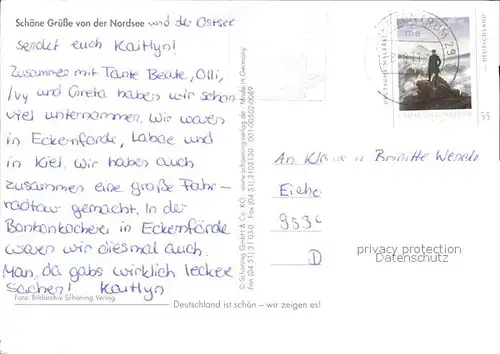 Schöne Grüße von der Nordsee und der Ostsee
sendet euch Kaitlyn!
Zusammen mit Tante Beate, Olli,
Ivy und Greta haben wir schon
viel unternommen. Wir waren
in Eckernförde, Laboe und
in Kiel. Wir haben auch
zusammen eine große Fahr-
radtour gemacht. In der
Bonbonkocherei in Eckernförde
waren wir diesmal auch.
Man, da gabs wirklich leckere
Sachen! Kaitlyn
Foto: Bildarchiv Schöning Verlag
Deutschland ist schön – wir zeigen es!
© Schöning GmbH & Co. KG · www.schoening-verlag.de · Made in Germany
Fon (04 51) 3 10 3-0 · Fax (04 51)
ZENTRUM 29
DEUTSCHLAND
55
An Brigitte
Eiche
D
privacy protection
Datenschutz